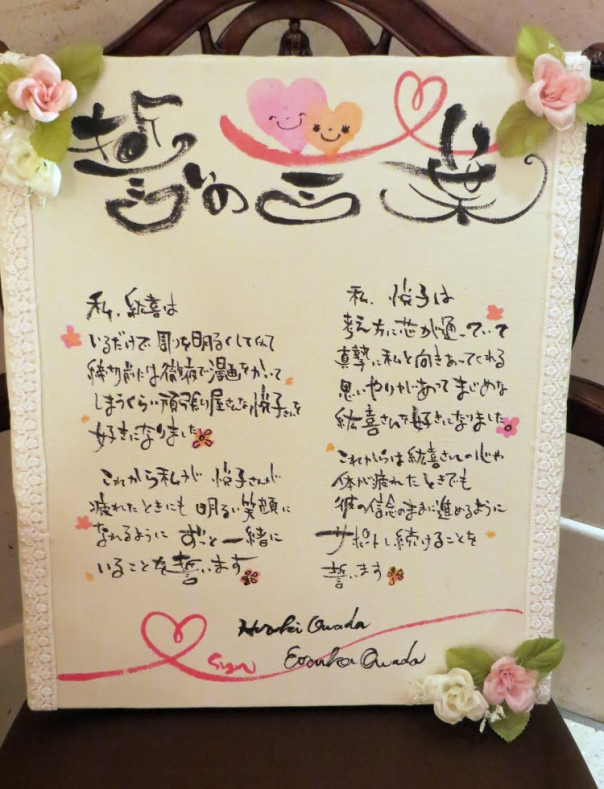 誓いの言葉
私、紘喜は
いるだけで周りを明るくしてくれて
締切前には徹夜で漫画をかいて
しまうくらい頑張り屋さんな悦子さんを
好きになりました
これから私が悦子さんが
疲れたときにも明るい笑顔に
なれるように ずっと一緒に
いることを誓います
私、悦子は
考え方に芯が通っていて
真摯に私と向きあってくれる
思いやりがあってまじめな
紘喜さんを好きになりました
これからは紘喜さんの心や
体が疲れたときでも
彼の信念のままに進めるように
サポートし続けることを
誓います
Sign
Hiroki Owada
Etsuko Owada